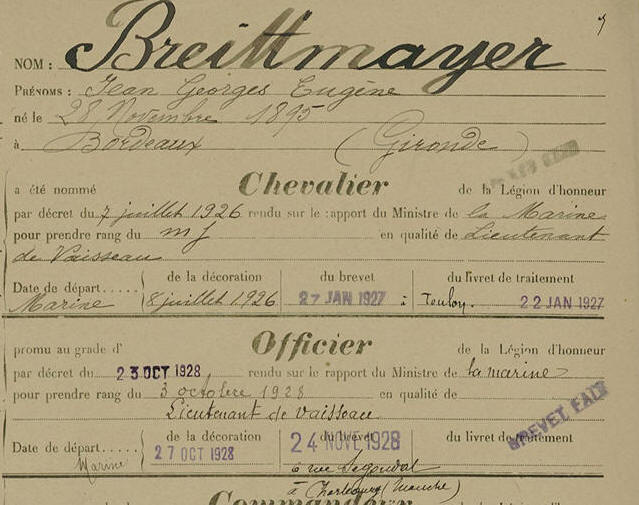 NOM : Breittmayer
PRÉNOMS : Jean Georges Eugène
né le 28 Novembre 1895
à Bordeaux (Gironde)
a été nommé Chevalier de la Légion d'honneur
par décret du 7 juillet 1926 rendu sur le rapport du Ministre de la Marine
pour prendre rang du mJ en qualité de Lieutenant
de Vaisseau
Date de départ..... de la décoration du brevet du livret de traitement
Marine 8 juillet 1926 27 JAN 1927 à Toulon. 22 JAN 1927
promu au grade d' Officier de la Légion d'honneur
par décret du 23 OCT 1928 rendu sur le rapport du Ministre de la marine
pour prendre rang du 3 octobre 1928 en qualité de
Lieutenant de vaisseau
BREVET FAIT
Date de départ..... de la décoration du brevet du livret de traitement
Marine 27 OCT 1928 24 NOV 1928
6 rue
à Cherbourg (Manche)
Commandeur